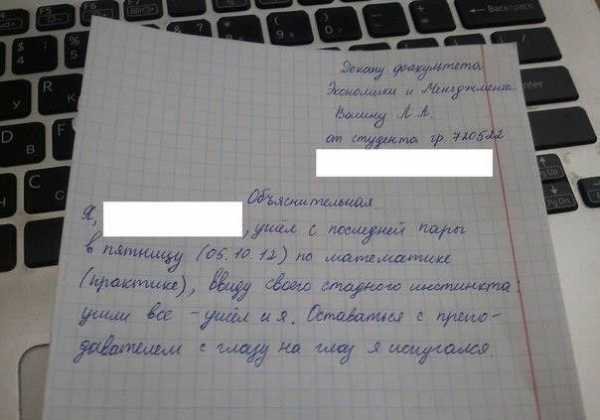 Декану факультета
Экономики и Менеджмента
Вашину А. А.
от студента гр. 720522
Объяснительная
Я, , ушёл с последней пары
в пятницу (05.10.12) по математике
(практике), ввиду своего стадного инстинкта:
ушли все - ушёл и я. Оставаться с препо-
давателем с глазу на глаз я испугался.